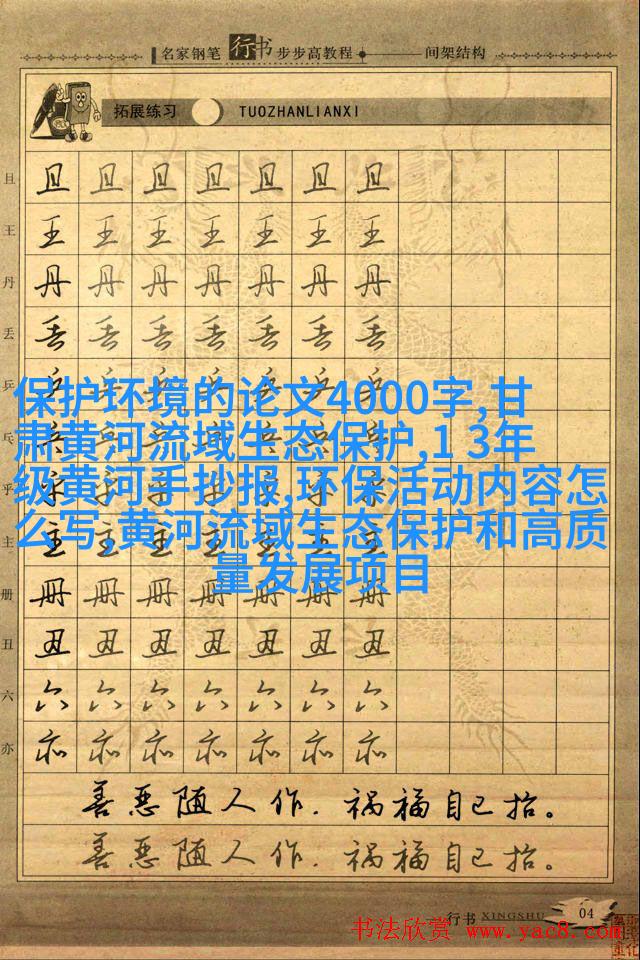 名家钢笔行书步步高教程 间架结构
拓展练习 TUOZHANLIANXI
且 且 且 且 且 且 且 且
王 王 王 王 王 王 王 王
丹 丹 丹 丹 丹 丹 丹 丹
丢 丢 丢 丢 丢 丢 丢 丢
乒
保护环境的论文4000字,甘
肃黄河流域生态保护,1 3年
级黄河手抄报,环保活动内容怎
么写,黄河流域生态保护和高质
量发展项目
乓
乎
主
册 册 册 册 册 册 册 册
丑 丑 丑 丑 丑 丑 丑 丑
六 六 六 六 六 六 六 六
亦 亦 亦 亦 亦 亦 亦 亦
善恶随人作.祸福自己招。
善恶随人作.祸福自己招。
行书 XINGSHU 04
书法欣赏 www.yac8.com